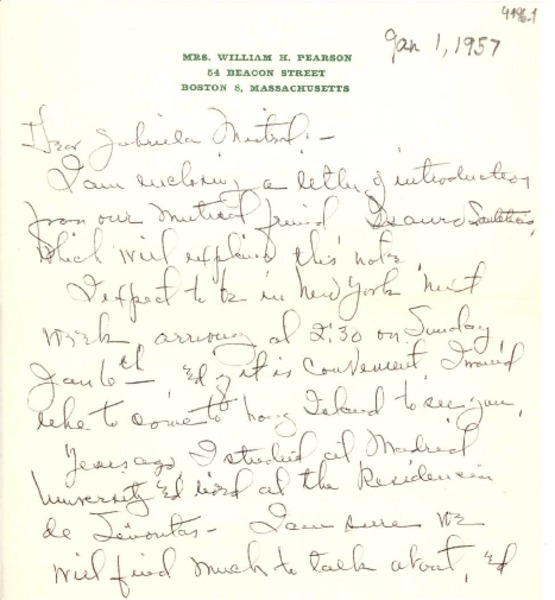 4196.1
Jan 1, 1957
MRS. WILLIAM H. PEARSON
54 BEACON STREET
BOSTON 8, MASSACHUSETTS
Dear Gabriela Mistral:-
I am enclosing a letter of introduction
from our mutual friend Isaura
which will explain this note
I expect to be in New York next
week, arriving at 2:30 on Sunday
Jan 6th - &d if it is convenient, I would
like to come to Long Island to see you,
Years ago I studied at Madrid
University &d lived at the Residencia
de Señoritas - I am sure we
will find much to talk about, &d